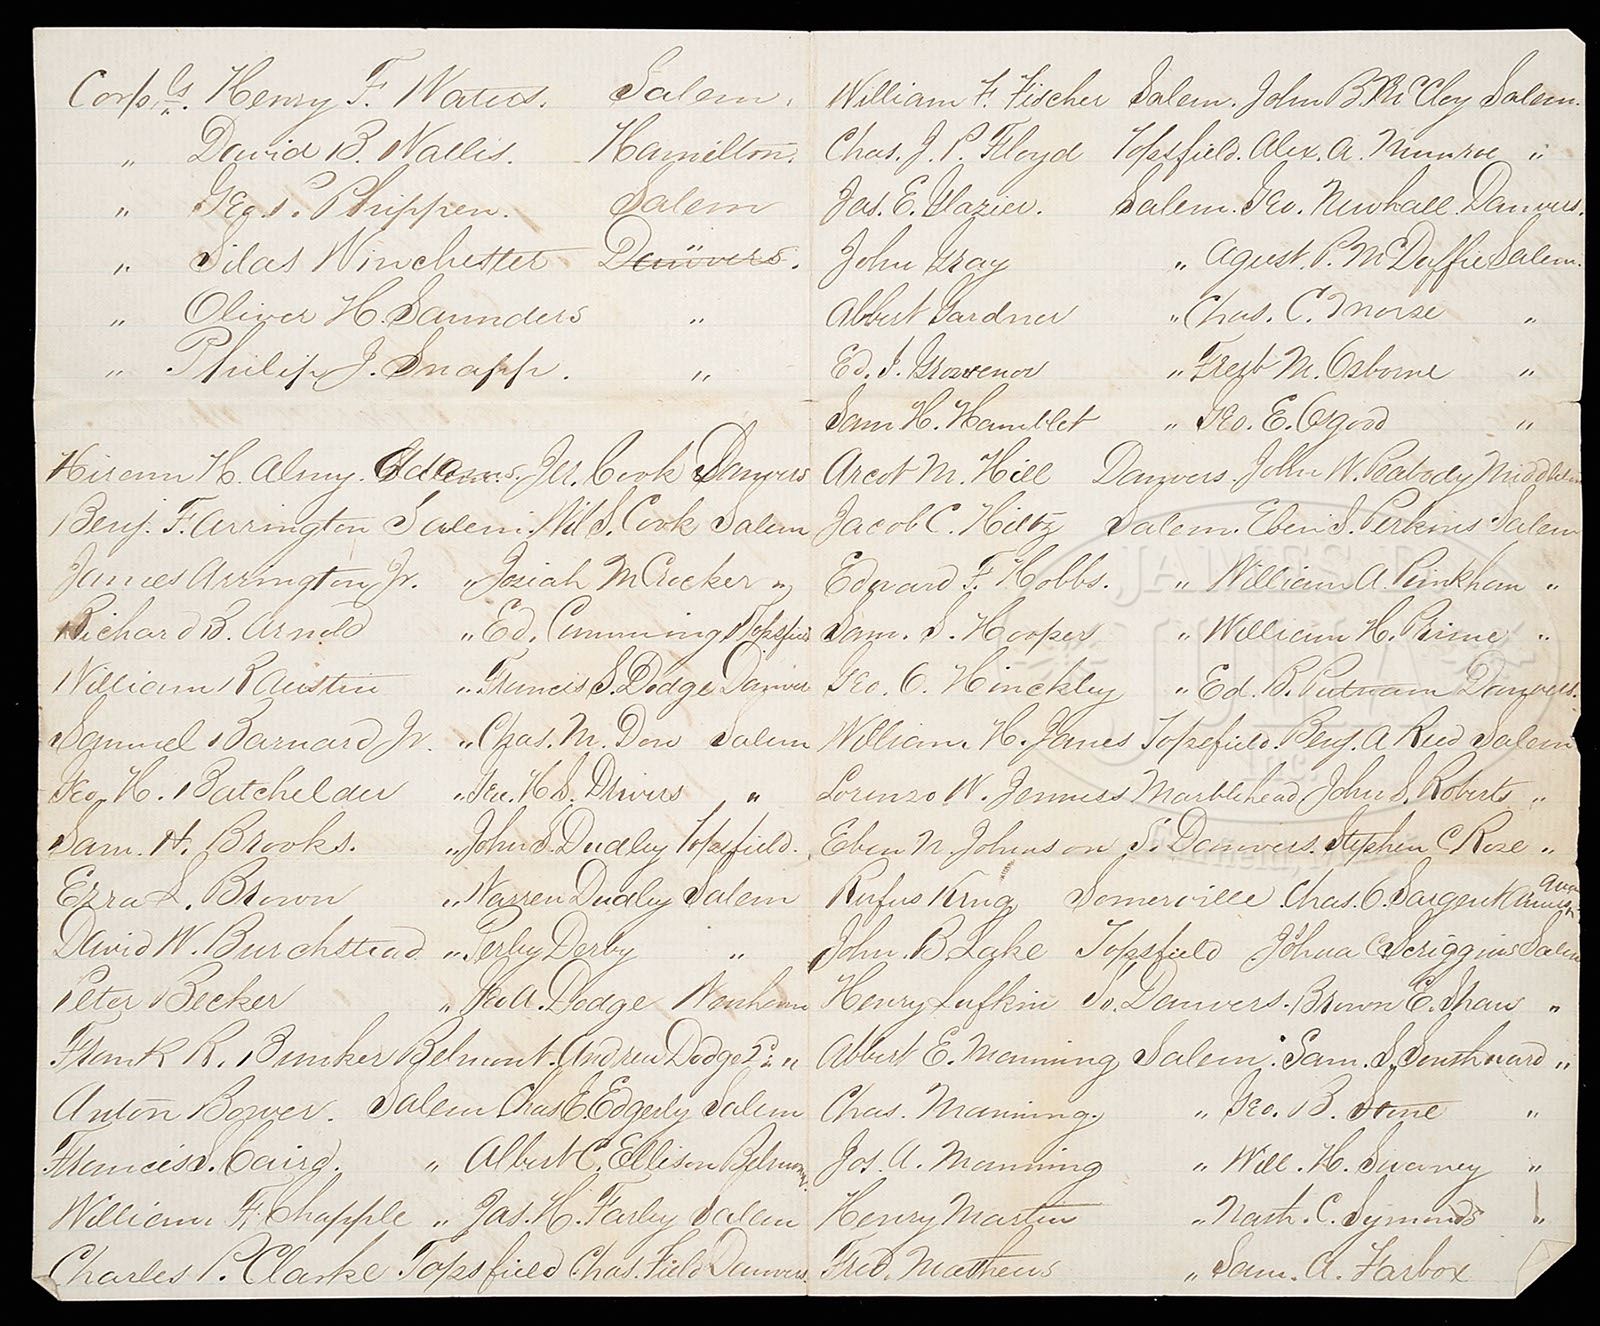 Corp.ls. Henry F. Waters. Salem.
„ David B. Wallis. Hamilton.
„ Geo. P. Phippen. Salem
„ Silas Winchester Danvers.
„ Oliver H. Saunders „
„ Philip J. Snapp. „
Hiram H. Almy. Adams. Jer. Cook Danvers
Benj. F. Arrington Salem. Wil S. Cook Salem
James Arrington Jr. „ Josiah M Crocker „
Richard B. Arnold „ Ed. Cummings Topsfield
William R Austin „ Francis S. Dodge Danver
Samuel Barnard Jr. „ Chas. M. Dow Salem
Geo. H. Batchelder „ Geo. H. S. Drivers „
Sam. H. Brooks. „ John S. Dudley Topsfield.
Ezra L. Brown „ Warren Dudley Salem
David W. Burchstead „ Perley Derby „
Peter Becker „ Geo A. Dodge Wenham
Frank R. Bunker Belmont. Andrew Dodge 2d „
Anton Bower. Salem Chas E. Edgerly Salem
Francis S. Caird. „ Albert C. Ellison Belmont
William F. Chapple „ Jas. H. Farley Salem
Charles P. Clarke Topsfield Chas. Field Danvers.
William F. Fischer Salem. John B McCloy Salem.
Chas. J. P. Floyd Topsfield. Alex. A. Munroe „
Jas. E. Glazier. Salem. Geo. Newhall Danvers.
John Gray „ Agust. P. McDuffie Salem.
Albert Gardner „ Chas. C. Morse „
Ed. J. Grosvenor „ M. Osborne „
Sam H. Hamblet „ Geo. E. Osgood „
Arcot M. Hill Danvers. John W. Peabody Middleton
Jacob C. Hiltz Salem. Eben S. Perkins Salem
Edward F. Hobbs. „ William A. Pinkham „
Sam. S. Hooper „ William H. Prime „
Geo. O. Hinckley „ Ed. B. Putnam Danvers.
William. H. Janes Topsfield. Benj. A Reed Salem
Lorenzo W. Jenness Marblehead, John S. Roberts „
Eben N. Johnson S. Danvers. Stephen C Rose „
Rufus King Somerville. Chas. O. Sargent
John. B Lake Topsfield Joshua C Scriggins Salem
Henry Lufkin So. Danvers. Brown E. Shaw „
Albert E. Manning Salem. Sam. S. Southward „
Chas. Manning. „ Geo. B. Stone „
Jos. A. Manning „ Will. H. Swaney „
Henry Martin „ Nath. C. Symonds „
Fred. Mathews „ Sam. A. Farbox
JAMES D.
JULIA
Inc.